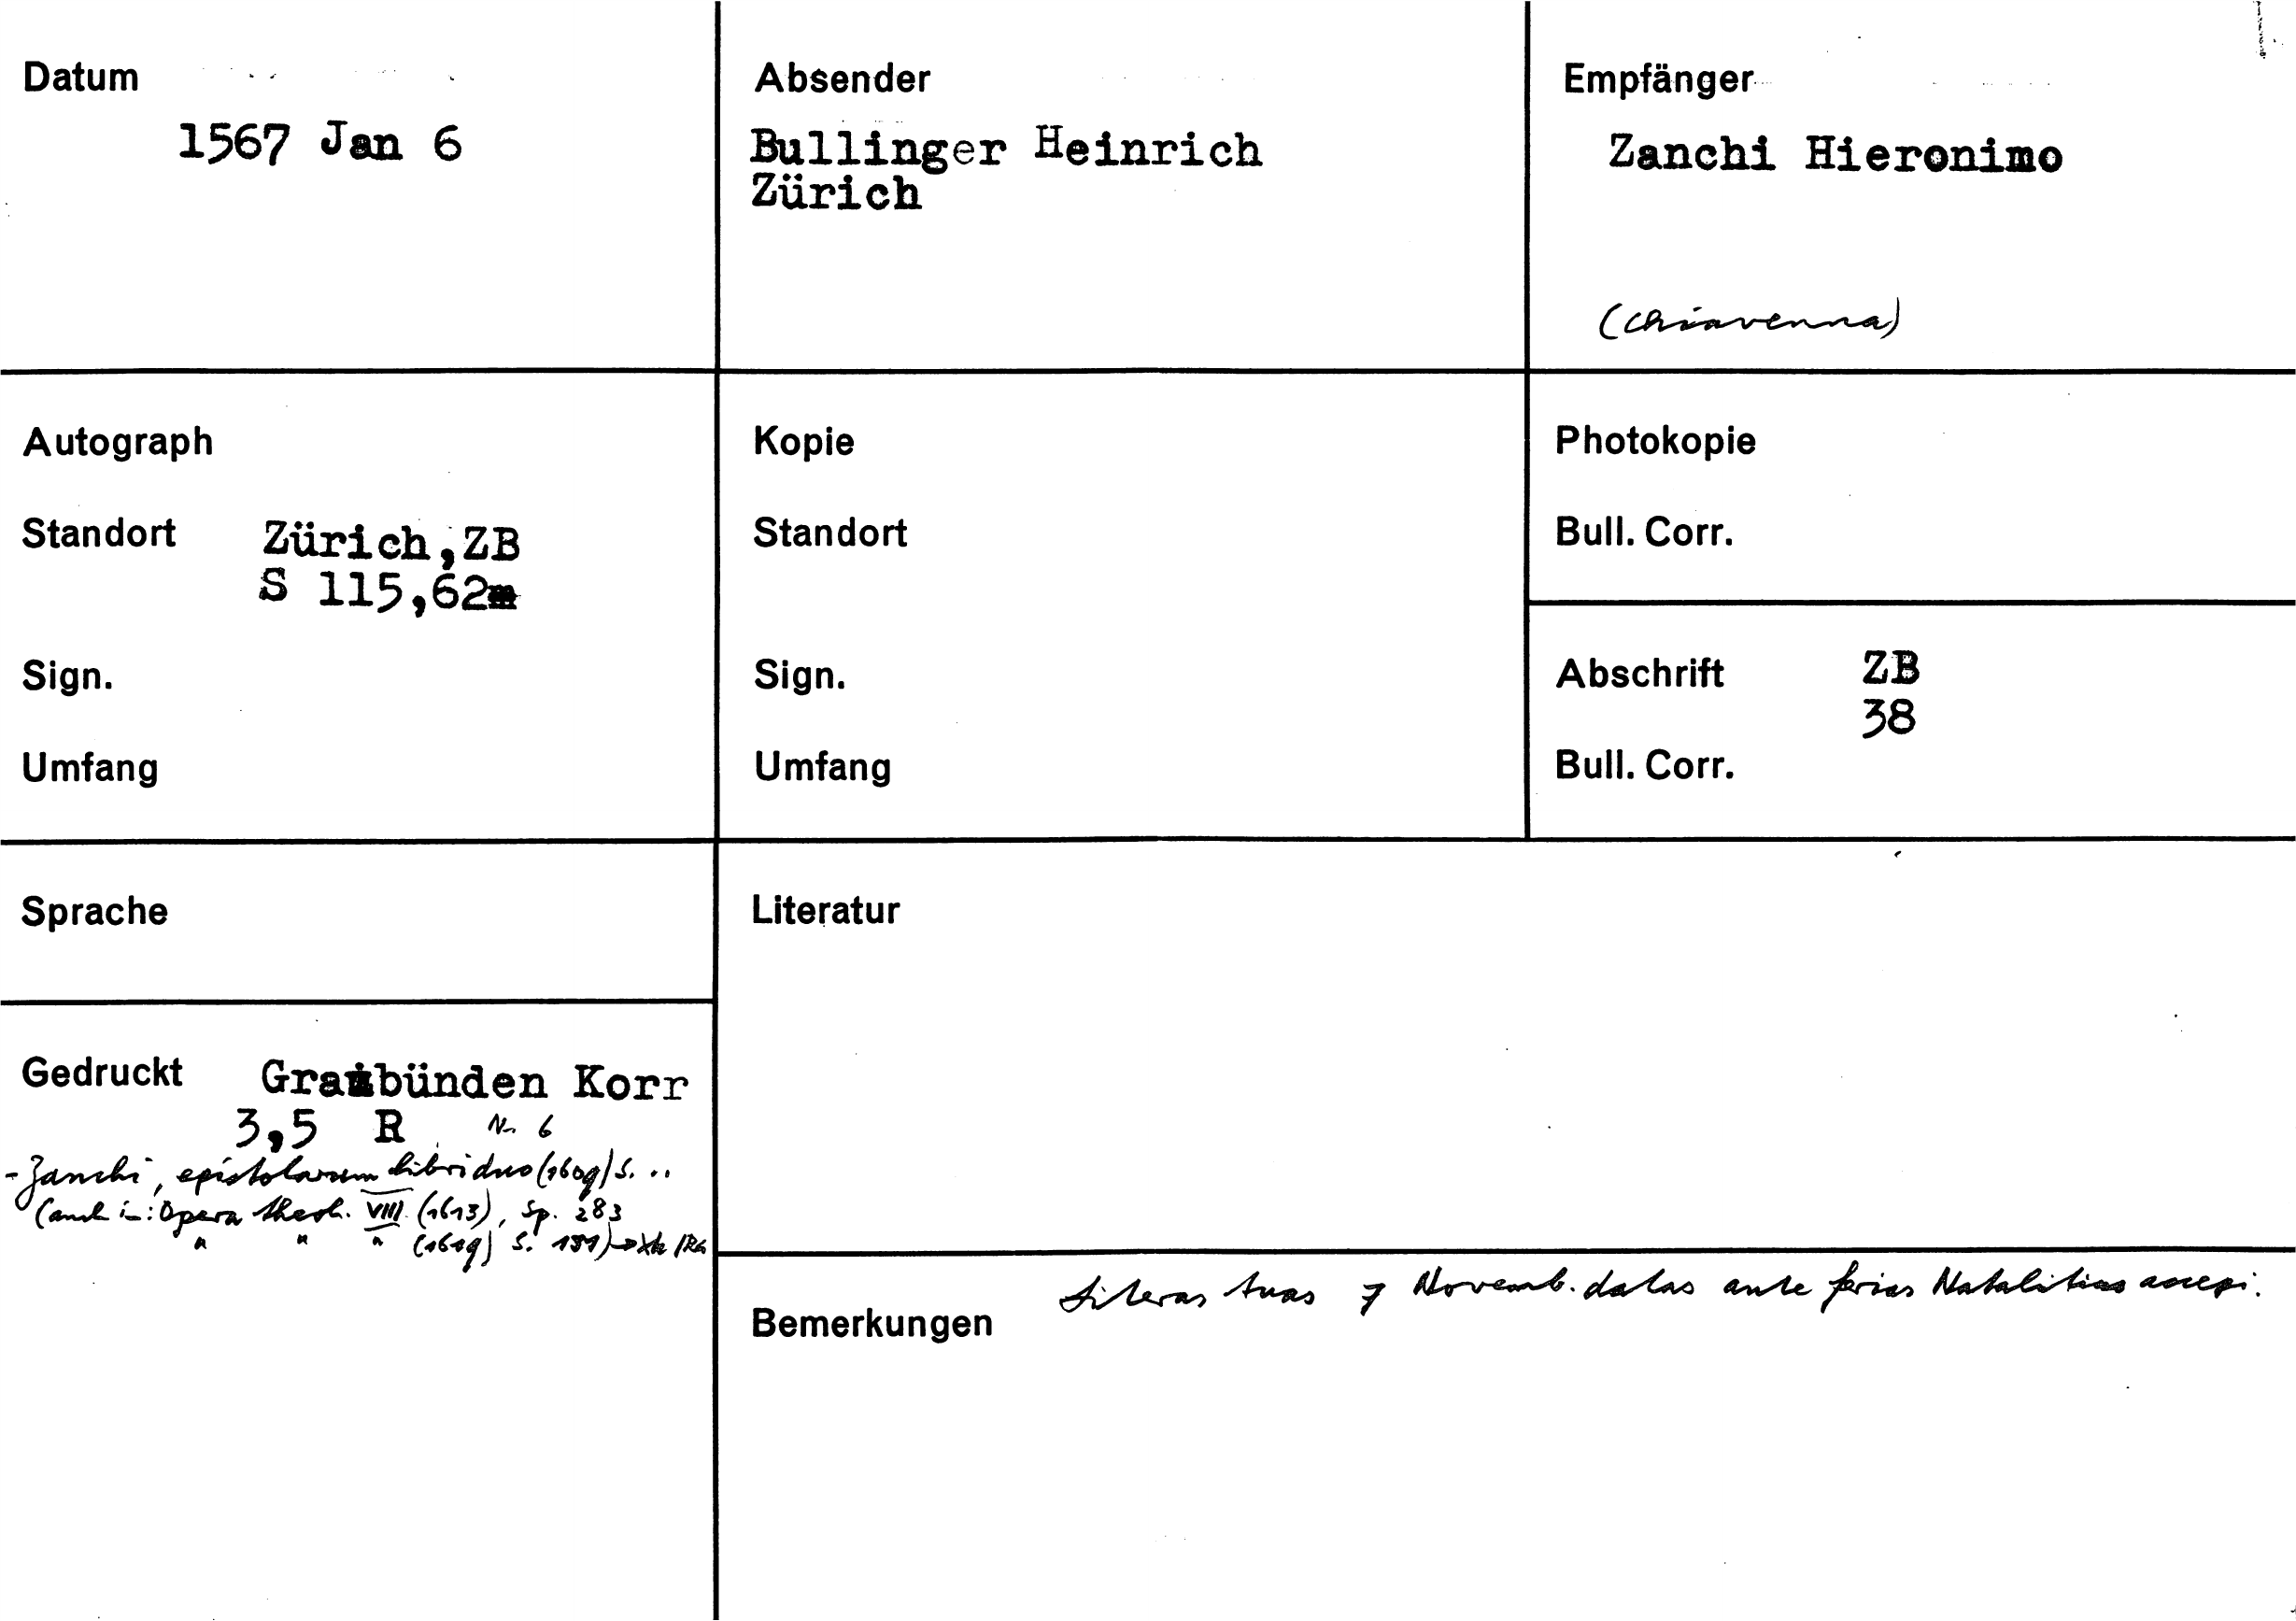 Datum
1567 Jan 6
Absender
Bullinger Heinrich
Zürich
Empfänger
Zanchi Hieronimo
(Chiavenna)
Autograph
Standort Zürich,ZB
S 115,62
Sign.
Umfang
Kopie
Standort
Sign.
Umfang
Photokopie
Bull. Corr.
Abschrift ZB
38
Bull. Corr.
Sprache
Literatur
Gedruckt Graubünden Korr
3,5 R Nr. 6
- Zanchi, epistolarum libri duo (1609) S. ..
(auch in: Opera theol. VIII (1613), Sp. 283
" " " (1619) S. 191) →
Bemerkungen
Literas tuas 7 Novemb. datas ante ferias Natalitias accepi.